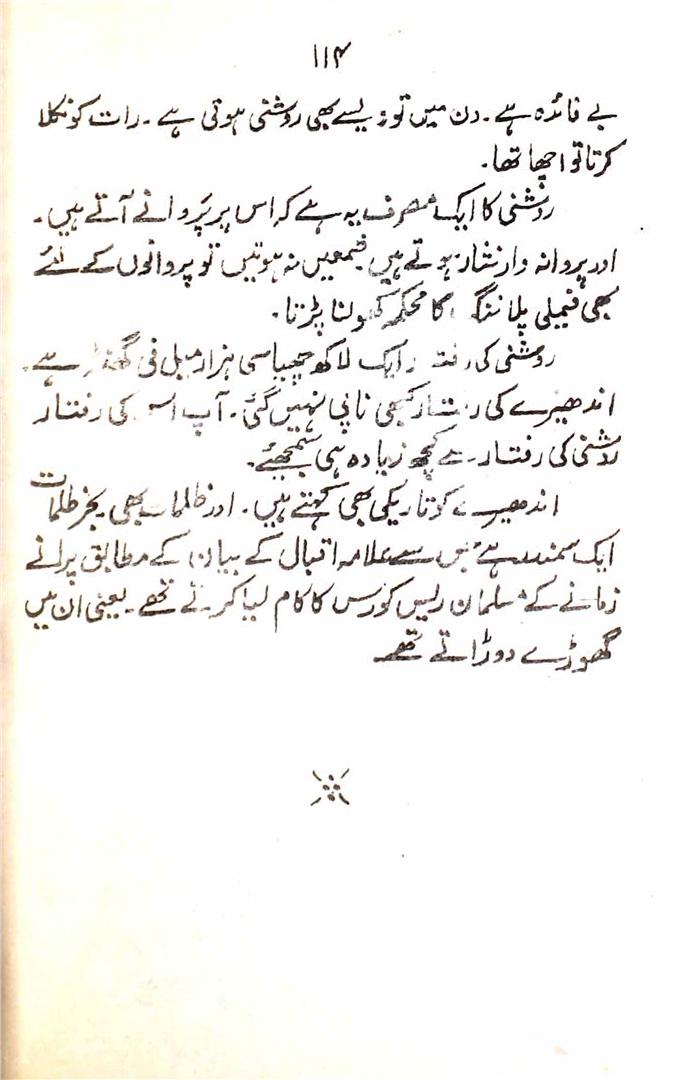 ۱۱۴
بے فائدہ ہے۔ دن میں تو ویسے بھی روشنی ہوتی ہے۔ رات کو نکلا
کرتا تو اچھا تھا۔
روشنی کا ایک مصرف یہ ہے کہ اس پر پروانے آتے ہیں۔
اور پروانہ وار نثار ہوتے ہیں شمعیں نہ ہوتیں تو پروانوں کے لئے
بھی فیملی پلاننگ کا محکمہ کھولنا پڑتا۔
روشنی کی رفتار ایک لاکھ چھیاسی ہزار میل فی گھنٹہ ہے۔
اندھیرے کی رفتار کبھی ناپی نہیں گئی۔ آپ اس کی رفتار
روشنی کی رفتار سے کچھ زیادہ ہی سمجھئے۔
اندھیرے کو تاریکی بھی کہتے ہیں۔ اور ظلمات بھی۔ بحرِ ظلمات
ایک سمندر ہے جس سے علامہ اقبال کے بیان کے مطابق پرانے
زمانے کے مسلمان ریس کورس کا کام لیا کرتے تھے۔ یعنی ان میں
گھوڑے دوڑاتے تھے